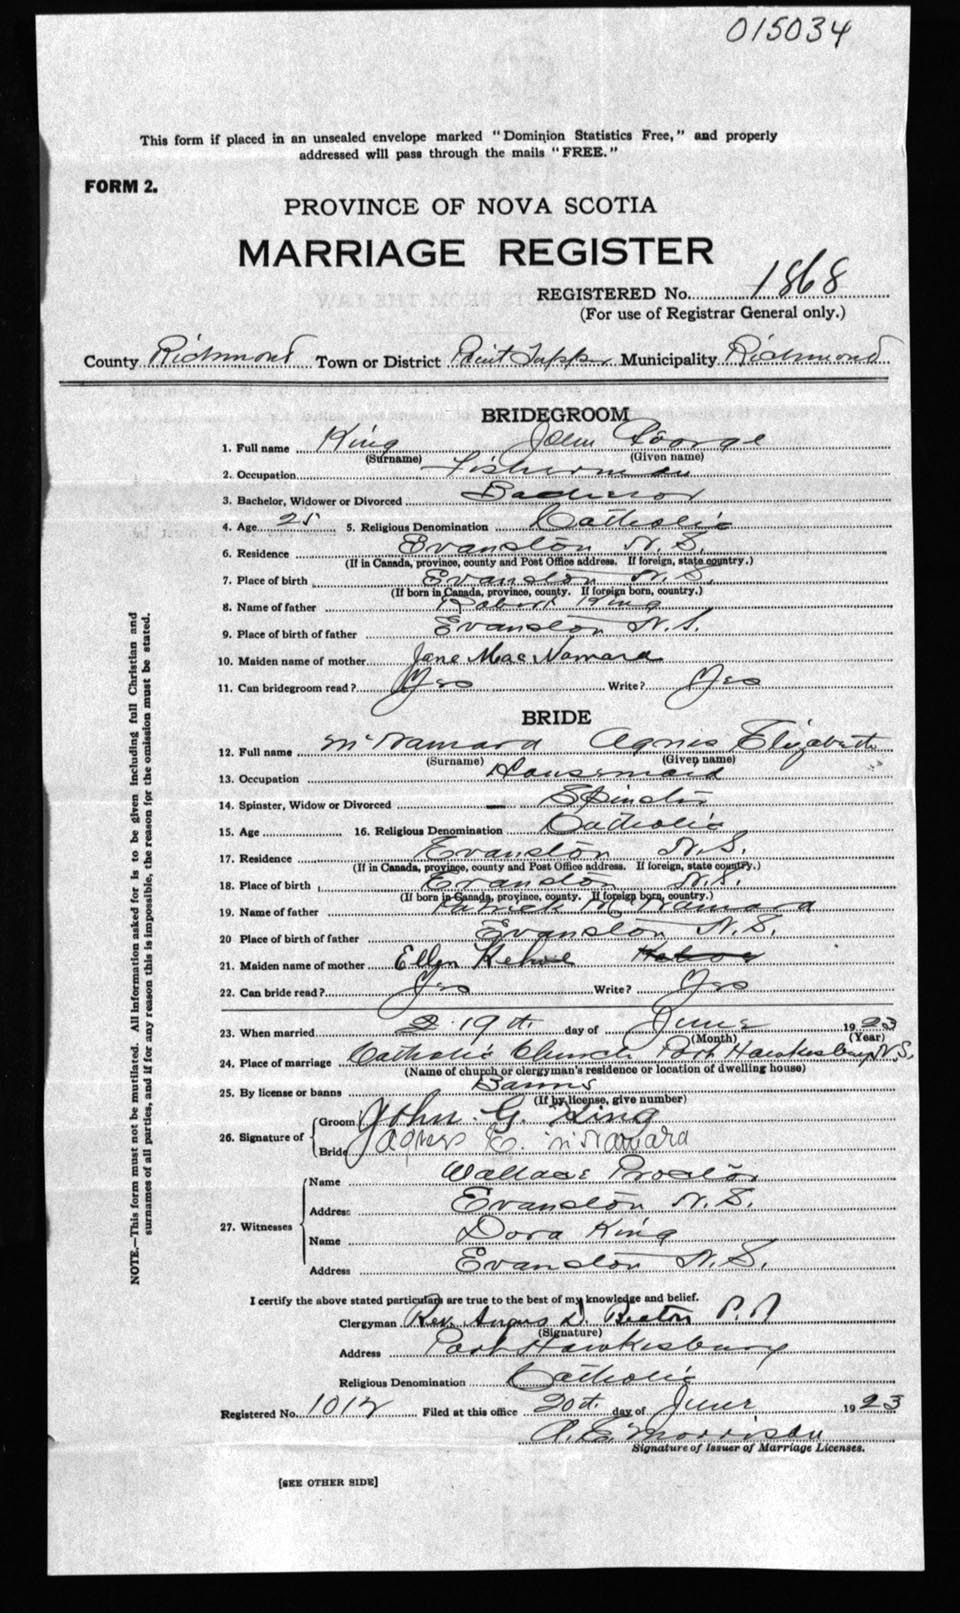 015034
This form if placed in an unsealed envelope marked "Dominion Statistics Free," and properly
addressed will pass through the mails "FREE."
FORM 2.
PROVINCE OF NOVA SCOTIA
MARRIAGE REGISTER
REGISTERED No. 1868
(For use of Registrar General only.)
County Richmond Town or District Point Tupper Municipality Richmond
BRIDEGROOM
1. Full name King John George
(Surname) (Given name)
2. Occupation Fisherman
3. Bachelor, Widower or Divorced Bachelor
4. Age 25 5. Religious Denomination Catholic
6. Residence Evanston N.S.
(If in Canada, province, county and Post Office address. If foreign, state country.)
7. Place of birth Evanston N.S.
(If born in Canada, province, county. If foreign born, country.)
8. Name of father Robert King
9. Place of birth of father Evanston N.S.
10. Maiden name of mother Jane MacNamara
11. Can bridegroom read? Yes Write? Yes
BRIDE
12. Full name McNamara Agnes Elizabeth
(Surname) (Given name)
13. Occupation Housemaid
14. Spinster, Widow or Divorced Spinster
15. Age 16. Religious Denomination Catholic
17. Residence Evanston N.S.
(If in Canada, province, county and Post Office address. If foreign, state country.)
18. Place of birth Evanston N.S.
(If born in Canada, province, county. If foreign born, country.)
19. Name of father Patrick McNamara
20 Place of birth of father Evanston N.S.
21. Maiden name of mother Ellen Kehoe
22. Can bride read? Yes Write? Yes
23. When married 19th day of June 1923
(Month) (Year)
24. Place of marriage Catholic Church Port Hawkesbury N.S.
(Name of church or clergyman's residence or location of dwelling house)
25. By license or banns Banns
(If by license, give number)
26. Signature of Groom John G. King
Bride Agnes E. McNamara
27. Witnesses Name Wallace Proctor
Address Evanston N.S.
Name Dora King
Address Evanston N.S.
I certify the above stated particulars are true to the best of my knowledge and belief.
Clergyman Rev. Angus D. Beaton P.P.
(Signature)
Address Port Hawkesbury
Religious Denomination Catholic
Registered No. 1012 Filed at this office 20th day of June 1923
Morrison
Signature of Issuer of Marriage Licenses.
[SEE OTHER SIDE]
NOTE.—This form must not be mutilated. All information asked for is to be given including full Christian and
surnames of all parties, and if for any reason this is impossible, the reason for the omission must be stated.